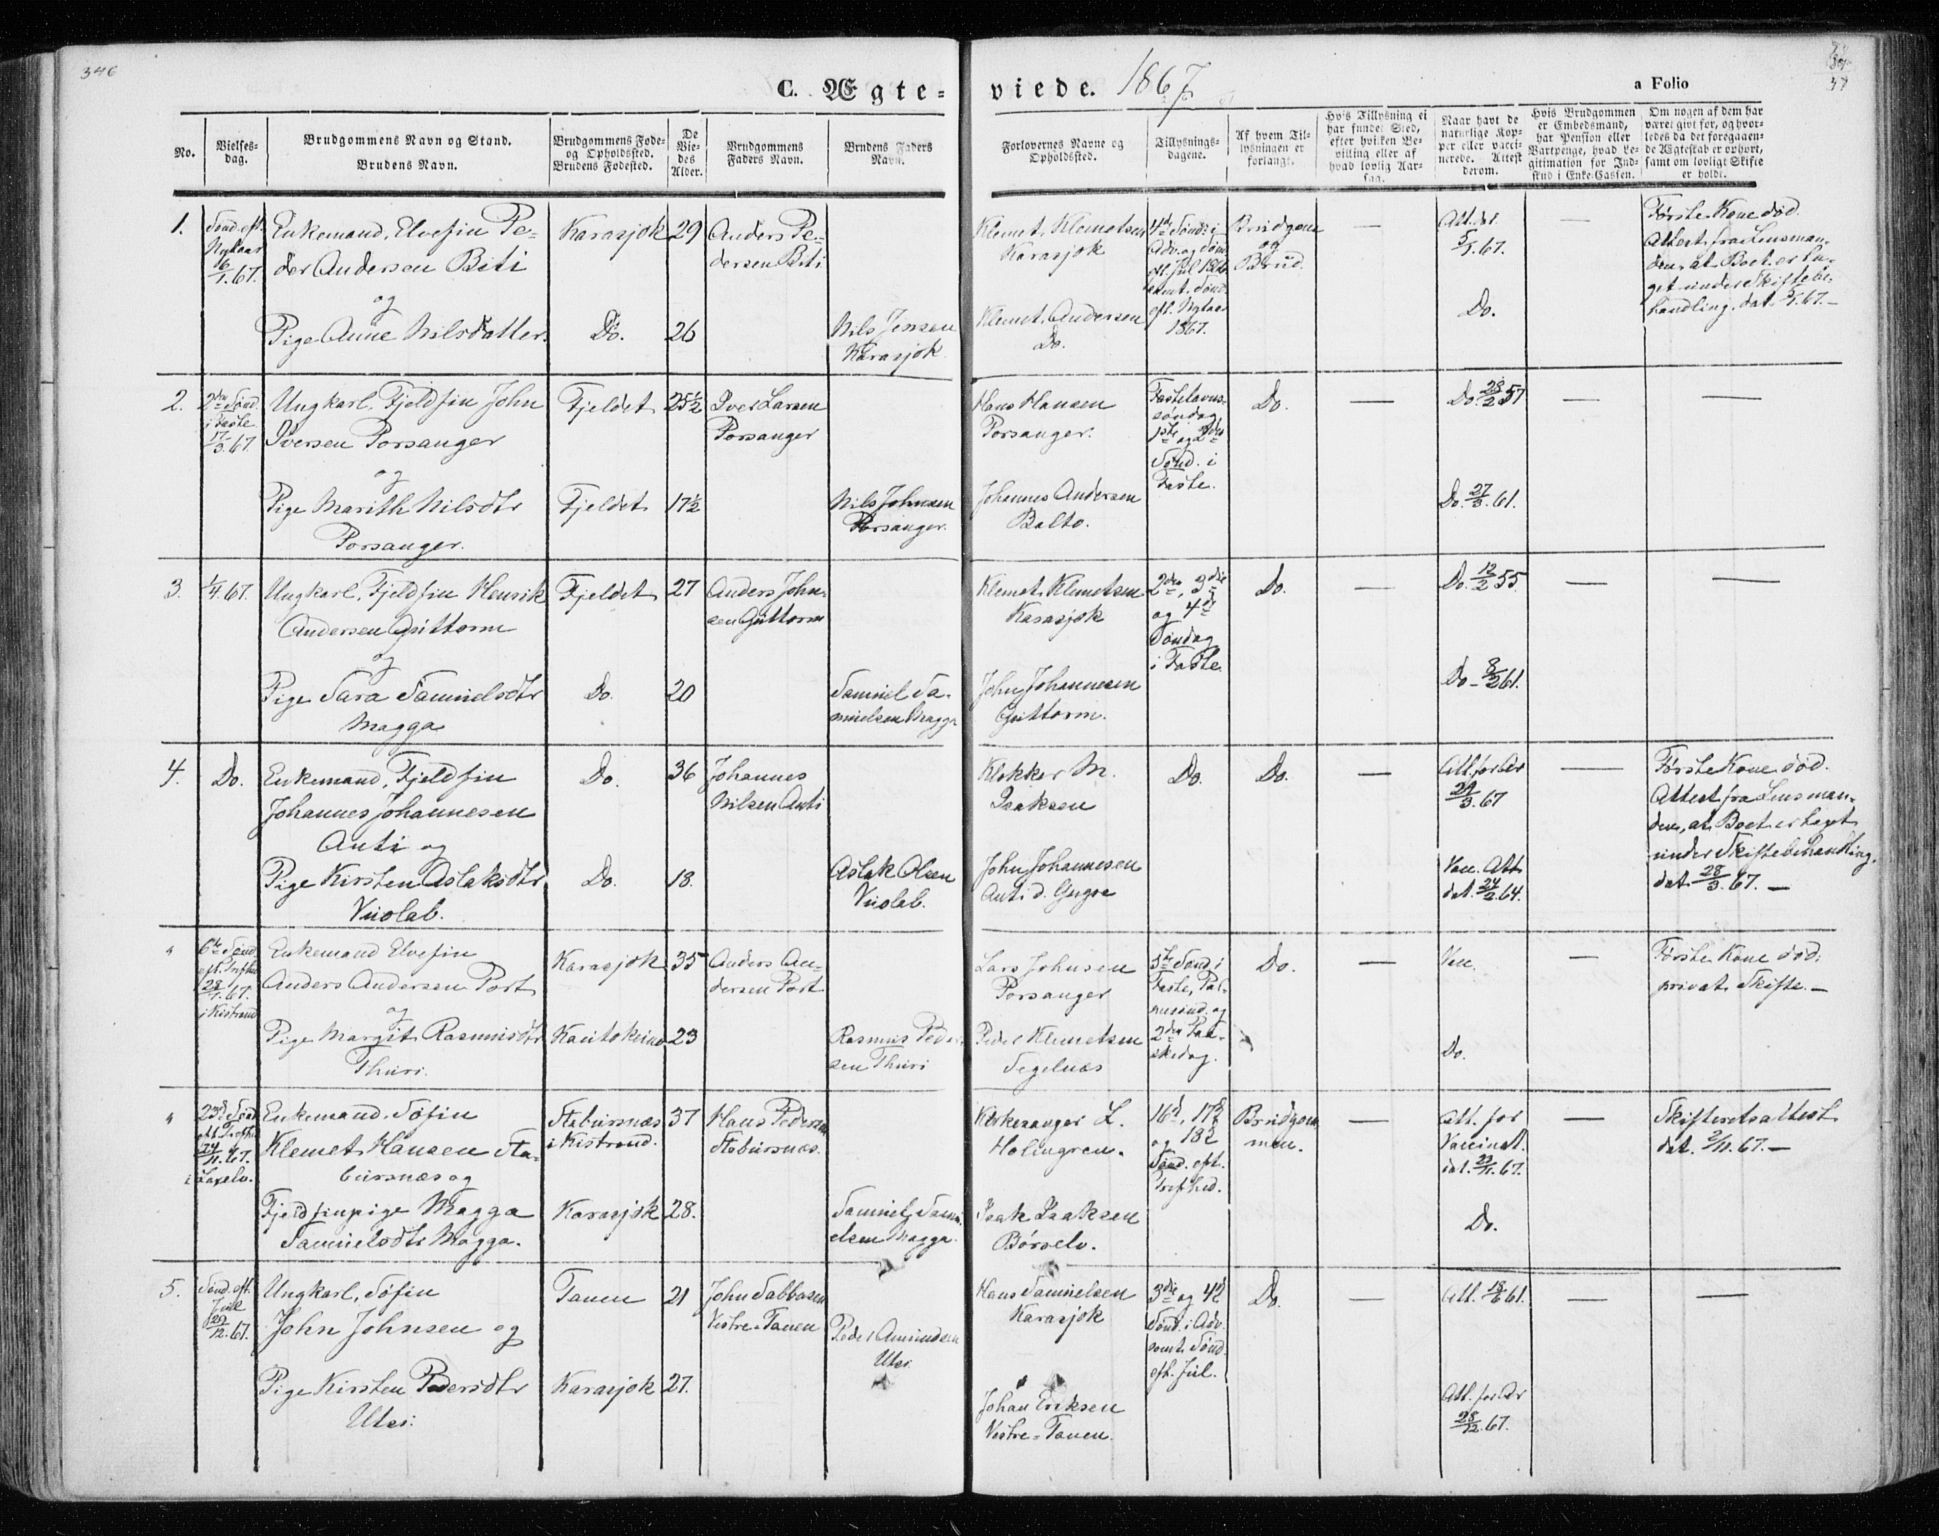 346
C. Ægte-
viede. 1867
a Folio
37
No.
Vielses-
dag.
Brudgommens Navn og Stand.
Brudens Navn.
Brudgommens Føde-
og Opholdsted.
Brudens Fødested.
De
Vie-
des
Alder.
Brudgommens
Faders Navn.
Brudens Faders
Navn.
Forlovernes Navne og
Opholdsted.
Tillysnings-
dagene.
Af hvem Til-
lysningen er
forlangt.
Hvis Tillysning ei
har fundet Sted,
efter hvilken Be-
villing eller af
hvad lovlig Aar-
sag.
Naar havt de
naturlige Kop-
per eller vacci-
nerede. Attest
derom.
Hvis Brudgommen
er Embedsmand,
har Pension eller
Vartpenge, hvad Le-
gitimation for Ind-
skud i Enke-Cassen.
Om nogen af dem har
været gift før, og hvor-
ledes da det foregaaen-
de Ægteskab er ophørt,
samt om lovligt Skifte
er holdt.
1.
Sønd. eft.
Nytaar
6/1.67.
Enkemand, Elvefin Pe-
der Andersen Biti
og
Pige Anne Nilsdatter.
Karasjok
Do.
29
26
Anders Pe-
dersen Biti
Nils Jensen
Karasjok
Klemet Klemetsen
Karasjok
Klemet Andersen
Do.
4de Sønd: i
Adv. og Sønd.
eft. Jul 1866
samt Sønd.
eft. Nytaar
1867.
Brudgom
og
Brud.
—
Att. dat
5/1.67.
Do.
—
Første Kone død.
Attest fra Lensman-
den, at Boet er ta-
get under Skiftebe-
handling, dat. 5/1.67.—
2.
2den Sønd.
i Faste
17/3.67.
Ungkarl, Fjeldfin John
Iversen Porsanger
og
Pige Marith Nilsdtr
Porsanger.
Fjeldet
Fjeldet
25½
17½
Iver Larsen
Porsanger
Nils Johnsen
Porsanger.
Hans Hansen
Porsanger.
Johannes Andersen
Balto.
Fastelavns-
søndag,
1ste og 2den
Sønd. i
Faste.
Do.
—
Do. 28/2 57
Do. 27/3.61.
—
—
3.
1/4.67.
Ungkarl, Fjeldfin Henrik
Andersen Guttorm
og
Pige Sara Samuelsdtr
Magga
Fjeldet
Do.
27
20
Anders John-
sen Guttorm
Samuel Sa-
muelsen Magga
Klemet Klemetsen
Karasjok
John Johannesen
Guttorm.
2den, 3die
og 4de
Søndag
i Faste
Do.
—
Do. 12/2 55.
Do. 8/2 61.
—
—
4.
Do.
Enkemand, Fjeldfin
Johannes Johannesen
Anti og
Pige Kirsten Aslaksdtr
Vuolab.
Do.
Do.
36
18.
Johannes
Nilsen Anti
Aslak Olsen
Vuolab.
Klokker M.
Isaksen
John Johannesen
Anti d. Yngre
Do.
Do.
—
Att. for Ar
24/3.67
Vac. Att.
dat. 24/2 64.
—
Første Kone død.
Attest fra Lensman-
den, at Boet er taget
under Skiftebehandling,
dat. 28/3.67.—
"
6te Sønd
eft. Trefhed
28/7.67.
i Kistrand
Enkemand Elvefin
Anders Andersen Port
og
Pige Margit Rasmusdtr
Thuri.
Karasjok
Kautokeino
35
23
Anders An-
dersen Port
Rasmus Peder-
sen Thuri
Lars Johnsen
Porsanger
Peder Klemetsen
Segelnæs
5te Sønd i
Faste, Pal-
mesønd. og
2den Paa-
skedag.
Do.
—
Vac.
Do.
—
Første Kone død.
privat Skifte.—
"
23de Sønd
eft. Trefhed
24/11.67.
i Laxelv.
Enkemand Søfin
Klemet Hansen Sta-
bursnæs og
Fjeldfinpige Magga
Samuelsdtr Magga.
Stabursnæs
i Kistrand.
Karasjok
37
28.
Hans Pedersen
Stabursnæs.
Samuel Samu-
elsen Magga.
Kirkesanger L.
Holmgren.
Isak Isaksen
Børselv.
16de, 17de
og 18de
Sønd. eft.
Trefhed.
Brudgom-
men.
—
Att. for
Vaccinat.
dat. 23/11.67.
Do.
—
Skifteretsattest
dat. 2/11.67.—
5.
Sønd. eft.
Jul
29/12.67.
Ungkarl, Søfin
John Johnsen og
Pige Kirsten Pedersdtr
Utsi.
Tanen
Karasjok
21
27.
John Sabbasen
Vestre-Tanen
Peder Amundsen
Utsi
Hans Samuelsen
Karasjok
Johan Eriksen
Vestre-Tanen.
3die og 4de
Sønd. i Adv.
samt Sønd.
eft. Jul.
Do.
—
Att. 18/6 61.
Att. for Ar
28/12.67.
—
—